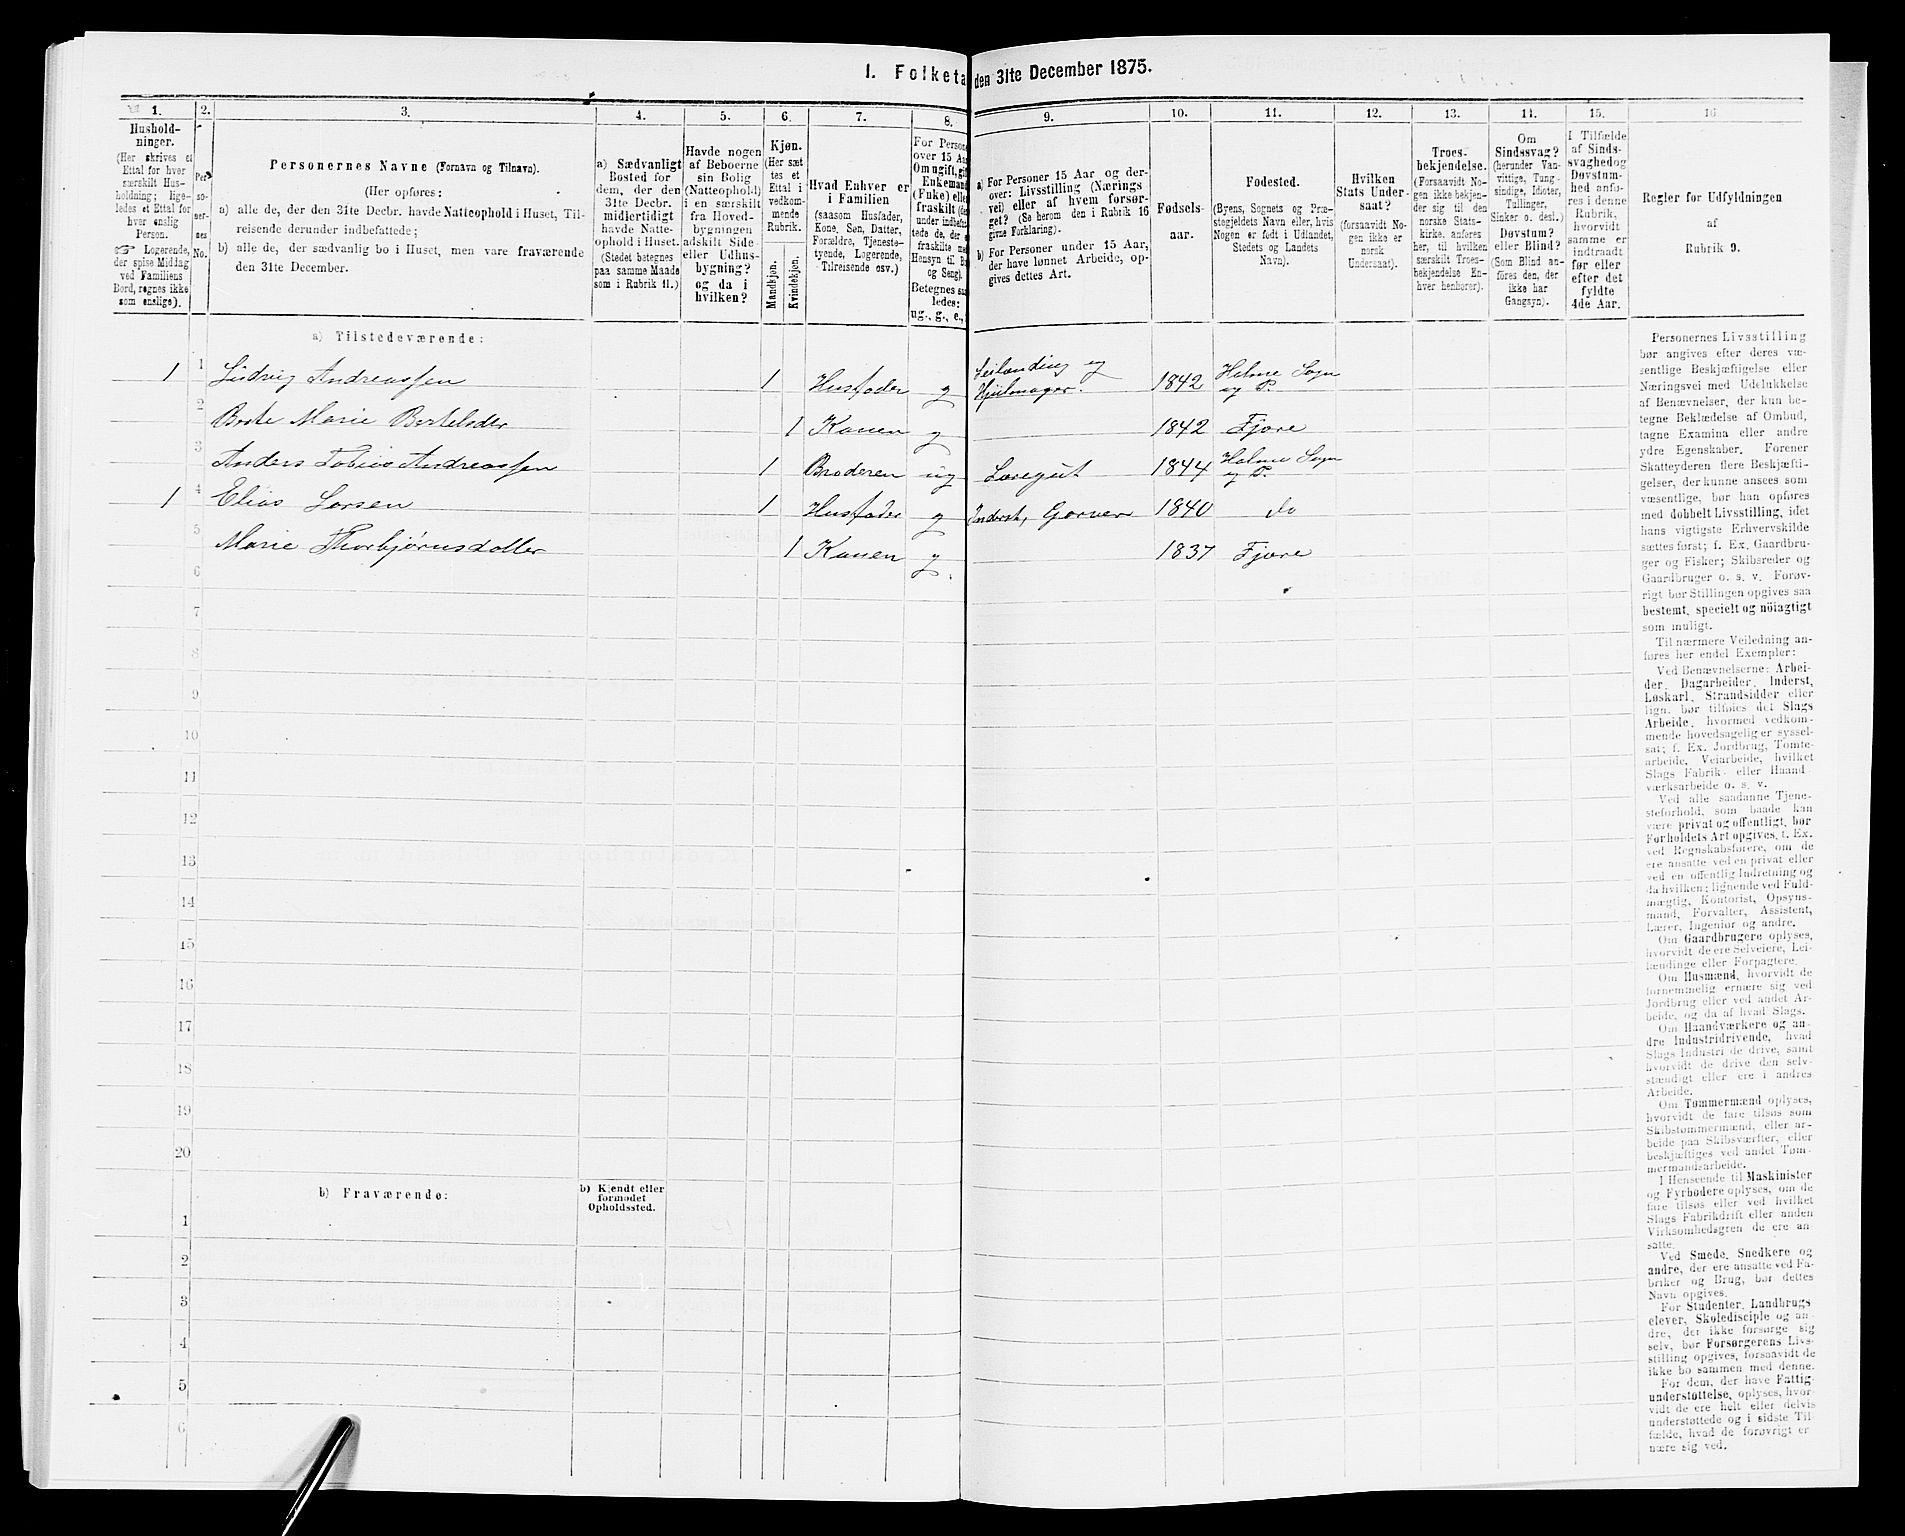 I. Folketa den 31te December 1875.
1. 2. 3. 4. 5. 6. 7. 8. 9. 10. 11. 12. 13. 14. 15. 16
Hushold-
ninger.
(Her skrives et
Ettal for hver
særskilt Hus-
holdning; lige-
ledes et Ettal for
hver enslig
Person.
☞ Logerende,
der spise Middag
ved Familiens
Bord, regnes ikke
som enslige).
Per-
so-
ner-
nes
No.
Personernes Navne (Fornavn og Tilnavn).
(Her opføres:
a) alle de, der den 31te Decbr. havde Natteophold i Huset, Til-
reisende derunder indbefattede;
b) alle de, der sædvanlig bo i Huset, men vare fraværende
den 31te December.
a) Sædvanligt
Bosted for
dem, der den
31te Decbr.
midlertidigt
havde Natte-
ophold i Huset.
(Stedet betegnes
paa samme Maade
som i Rubrik 11.)
Havde nogen
af Beboerne
sin Bolig
(Natteophold)
i en særskilt
fra Hoved-
bygningen
adskilt Side-
eller Udhus-
bygning?
og da i
hvilken?
Kjøn.
(Her sæt-
tes et
Ettal i
vedkom-
mende
Rubrik.
Mandkjøn.
Kvindekjøn.
Hvad Enhver er
i Familien
(saasom Husfader,
Kone, Søn, Datter,
Forældre, Tjeneste-
tyende, Logerende,
Tilreisende osv.)
For Persone
over 15 Aar
Om ugift, gift
Enkemand
(Enke) elle
fraskilt (der
under indbefat-
tede de, der e
fraskilte me
Hensyn til Bo
og Seng).
Betegnes saa
ledes:
ug., g., e.,
a) For Personer 15 Aar og der-
over: Livsstilling (Nærings
vei) eller af hvem forsør-
get? (Se herom den i Rubrik 16
givne Forklaring).
b) For Personer under 15 Aar,
der have lønnet Arbeide, op-
gives dettes Art.
Fødsels-
aar.
Fødested.
(Byens, Sognets og Præ-
stegjeldets Navn eller, hvis
Nogen er født i Udlandet,
Stedets og Landets
Navn).
Hvilken
Stats Under-
saat?
(forsaavidt No-
gen ikke er
norsk
Undersaat).
Troes-
bekjendelse.
(Forsaavidt No-
gen ikke bekjen-
der sig til den
norske Stats-
kirke, anføres
her, til hvilken
særskilt Troes-
bekjendelse En-
hver henhører).
Om
Sindssvag?
(herunder Van-
vittige, Tung-
sindige, Idioter,
Tullinger,
Sinker o. desl.)
Døvstum?
eller Blind?
(Som Blind an-
føres den, der
ikke har
Gangsyn).
I Tilfælde
af Sinds-
svaghed og
Døvstum-
hed anfø-
res i denne
Rubrik,
hvorvidt
samme er
indtraadt
før eller
efter det
fyldte
4de Aar.
Regler for Udfyldningen
af
Rubrik 9.
a) Tilstedeværende:
1 1 Ludvig Andreassen 1 Husfader g Leilending og Hjulmager. 1842 Halme Sogn og P.
2 Berte Marie Bertelsdtr 1 Konen g 1842 Fjære
3 Anders Tobias Andreassen 1 Broderen ug Løsegut 1844 Halme Sogn og P.
1 4 Elias Larsen 1 Husfader g Inderst, Garver 1840 do
5 Marie Thorbjørnsdatter 1 Konen g. 1837 Fjære
6
7
8
9
10
11
12
13
14
15
16
17
18
19
20
b) Fraværende:
b) Kjendt eller
formodet
Opholdssted.
1
2
3
4
5
6
Personernes Livsstilling
bør angives efter deres væ-
sentlige Beskjæftigelse eller
Næringsvei med Udelukkelse
af Benævnelser, der kun be-
tegne Beklædelse af Ombud,
tagne Examina eller andre
ydre Egenskaber. Forener
Skatteyderen flere Beskjæfti-
gelser, der kunne ansees som
væsentlige, bør han opføres
med dobbelt Livsstilling, idet
hans vigtigste Erhvervskilde
sættes først; f. Ex. Gaardbru-
ger og Fisker; Skibsreder og
Gaardbruger o. s. v. Forøv-
rigt bør Stillingen opgives saa
bestemt, specielt og nöiagtigt
som muligt.
Til nærmere Veiledning an-
føres her endel Exempler:
Ved Benævnelserne: Arbei-
der, Dagarbeider, Inderst,
Løskarl, Strandsidder eller
lign. bør tilføies det Slags
Arbeide, hvormed vedkom-
mende hovedsagelig er syssel-
sat; f. Ex. Jordbrug, Tomte-
arbeide, Veiarbeide, hvilket
Slags Fabrik- eller Haand-
værksarbeide o. s. v.
Ved alle saadanne Tjene-
steforhold, som baade kan
være privat og offentligt, bør
Forholdets Art opgives, t. Ex.
ved Regnskabsførere, om de
ere ansatte ved en privat eller
ved en offentlig Indretning og
da hvilken; lignende ved Fuld-
mægtig, Kontorist, Opsyns-
mand, Forvalter, Assistent,
Lærer, Ingeniør og andre.
Om Gaardbrugere oplyses,
hvorvidt de ere Selveiere, Lei-
lændinge eller Forpagtere.
Om Husmænd, hvorvidt de
fornemmelig ernære sig ved
Jordbrug eller ved andet Ar-
beide, og da af hvad Slags.
Om Haandværkere og an-
dre Industridrivende, hvad
Slags Industri de drive, samt
hvorvidt de drive den selv-
stændigt eller ere i andres
Arbeide.
Om Tømmermænd oplyses,
hvorvidt de fare tilsøs som
Skibstømmermænd, eller ar-
beide paa Skibsværfter, eller
beskjæftiges ved andet Tøm-
mermandsarbeide.
I Henseende til Maskinister
og Fyrbødere oplyses, om de
fare tilsøs eller ved hvilket
Slags Fabrikdrift eller anden
Virksomhedsgren de ere an-
satte.
Ved Smede, Snedkere og
andre, der ere ansatte ved Fa-
briker og Brug, bør dettes
Navn opgives.
For Studenter, Landbrugs-
elever, Skoledisciple og an-
dre, der ikke forsørge sig
selv, bør Forsørgerens Livs-
stilling opgives, forsaavidt de
ikke bo sammen med denne.
For dem, der have Fattig-
understøttelse, oplyses, hvor-
vidt de ere helt eller delvis
understøttede og i sidste Til-
fælde, hvad de forøvrigt er-
nære sig ved.